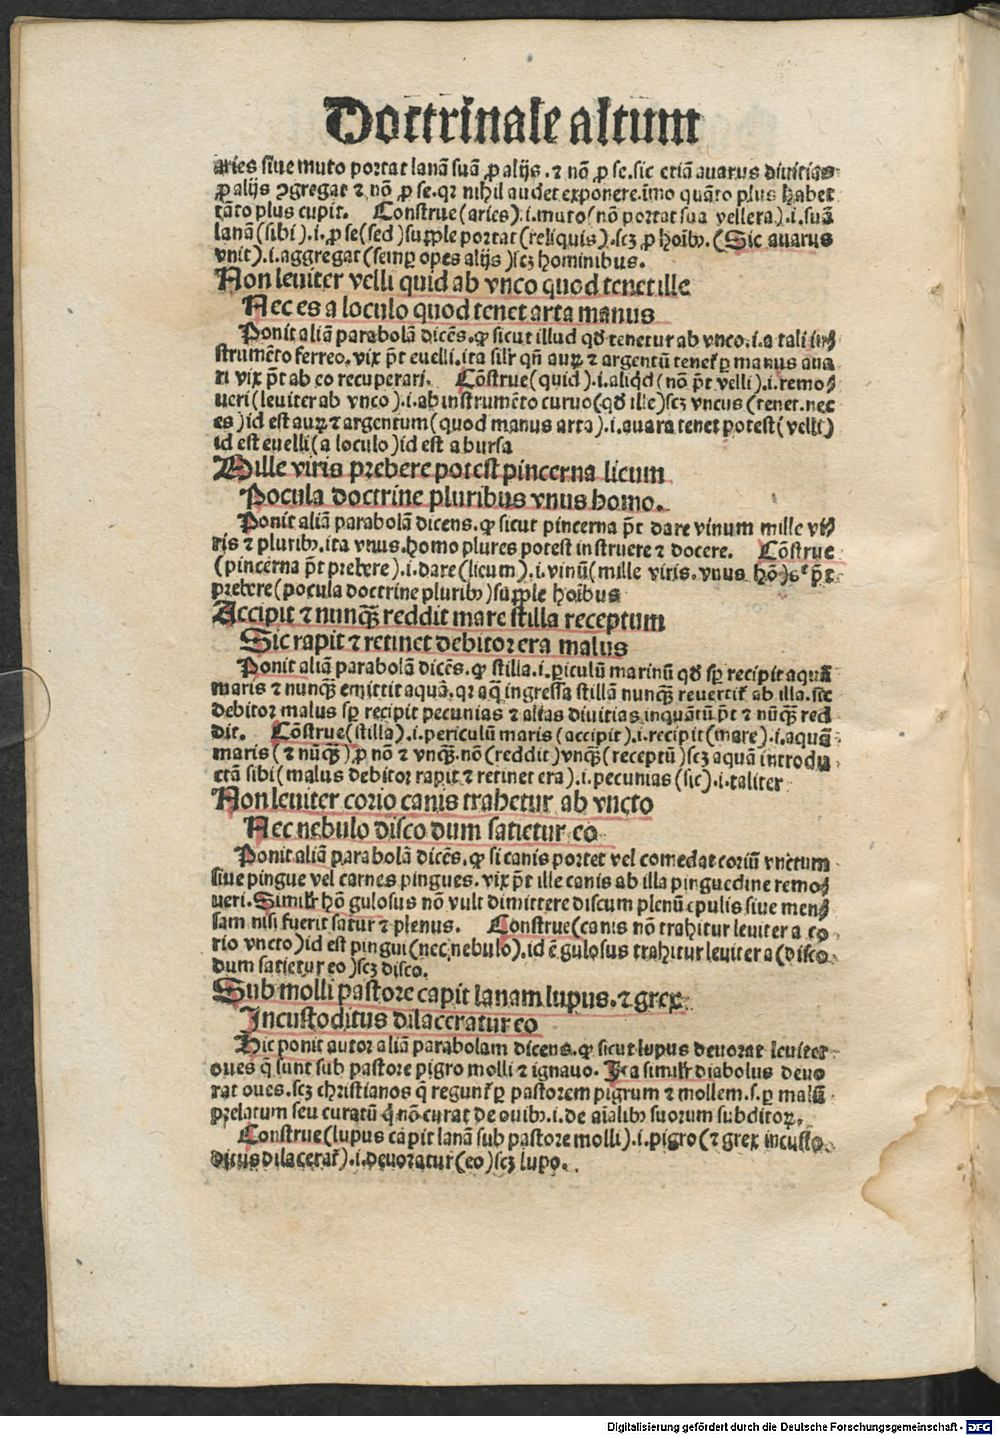 Doctrinale altum
aries siue muto portat lanã suã ꝓ alijs. ⁊ nõ ꝓ se. sic etiã auarus diuitias
ꝓ alijs ↄgregat ⁊ nõ ꝓ se. qꝛ nihil audet exponere. ĩmo quãto plus habet
tãto plus cupit. Construe (aries) .i. muto (nõ portat sua vellera) .i. suã
lanã (sibi) .i. ꝓ se (sed) supple portat (reliquis) .scꝫ ꝓ hoĩbꝰ. (Sic auarus
vnit) .i. aggregat (semꝑ opes alijs) scꝫ hominibus.
Non leuiter velli quid ab vnco quod tenet ille
Nec es a loculo quod tenet arta manus
Ponit aliã parabolã dicẽs. ꝙ sicut illud qð tenetur ab vnco .i. a tali in⸗
strumẽto ferreo. vix põt euelli. ita silr̃ qñ auꝝ ⁊ argentũ tenet̃ ꝑ manus aua
ri vix põt ab eo recuperari. Cõstrue (quid) .i. aliqd (nõ põt velli) .i. remo⸗
ueri (leuiter ab vnco) .i. ab instrumẽto curuo (qð ille) scꝫ vncus (tenet. nec
es) id est auꝝ ⁊ argentum (quod manus arta) .i. auara tenet potest (velli)
id est euelli (a loculo) id est a bursa
Mille viris prebere potest pincerna licum
Pocula doctrine pluribus vnus homo.
Ponit aliã parabolã dicens. ꝙ sicut pincerna põt dare vinum mille vi⸗
ris ⁊ pluribꝰ. ita vnus. homo plures potest instruere ⁊ docere. Cõstrue
(pincerna põt prebere) .i. dare (licum) .i. vinũ (mille viris. vnus hõ) põt
prebere (pocula doctrine pluribꝰ) supple hoĩbus
Accipit ⁊ nunqꝫ reddit mare stilla receptum
Sic rapit ⁊ retinet debitor era malus
Ponit aliã parabolã dicẽs. ꝙ stilla .i. ꝑiculũ marinũ qð sꝑ recipit aquã
maris ⁊ nunqꝫ emittit aquã. qꝛ aq̃ ingressa stillã nunqꝫ reuertit̃ ab illa. sic
debitor malus sꝑ recipit pecunias ⁊ alias diuitias inquãtũ põt ⁊ nũqꝫ red
dit. Cõstrue (stilla) .i. periculũ maris (accipit) .i. recipit (mare) .i. aquã
maris (⁊ nũqꝫ) ꝓ nõ ⁊ vnqꝫ. nõ (reddit) vnqꝫ (receptũ) scꝫ aquã introdu
ctã sibi (malus debitor rapit ⁊ retinet era) .i. pecunias (sic) .i. taliter
Non leuiter corio canis trahetur ab vncto
Nec nebulo disco dum satietur eo
Ponit aliã parabolã dicẽs. ꝙ si canis portet vel comedat coriũ vnctum
siue pingue vel carnes pingues. vix põt ille canis ab illa pinguedine remo⸗
ueri. Similr̃ hõ gulosus nõ vult dimittere discum plenũ epulis siue men⸗
sam nisi fuerit satur ⁊ plenus. Construe (canis nõ trahitur leuiter a co
rio vncto) id est pingui (nec nebulo) .id ẽ gulosus trahitur leuiter a (disco
dum satietur eo) scꝫ disco.
Sub molli pastore capit lanam lupus. ⁊ grex
Incustoditus dilaceratur eo
Hic ponit autor aliã parabolam dicens. ꝙ sicut lupus deuorat leuiter
oues q̃ sunt sub pastore pigro molli ⁊ ignauo. Ita similr̃ diabolus deuo
rat oues. scꝫ christianos q̃ regunt̃ ꝑ pastorem pigrum ⁊ mollem .s. ꝑ malũ
prelatum seu curatũ q̃ nõ curat de ouibꝰ .i. de aĩalibꝰ suorum subditoꝝ.
Construe (lupus capit lanã sub pastore molli) .i. pigro (⁊ grex incusto
ditus dilacerat̃) .i. deuoratur (eo) scꝫ lupo.
Digitalisierung gefördert durch die Deutsche Forschungsgemeinschaft - DFG